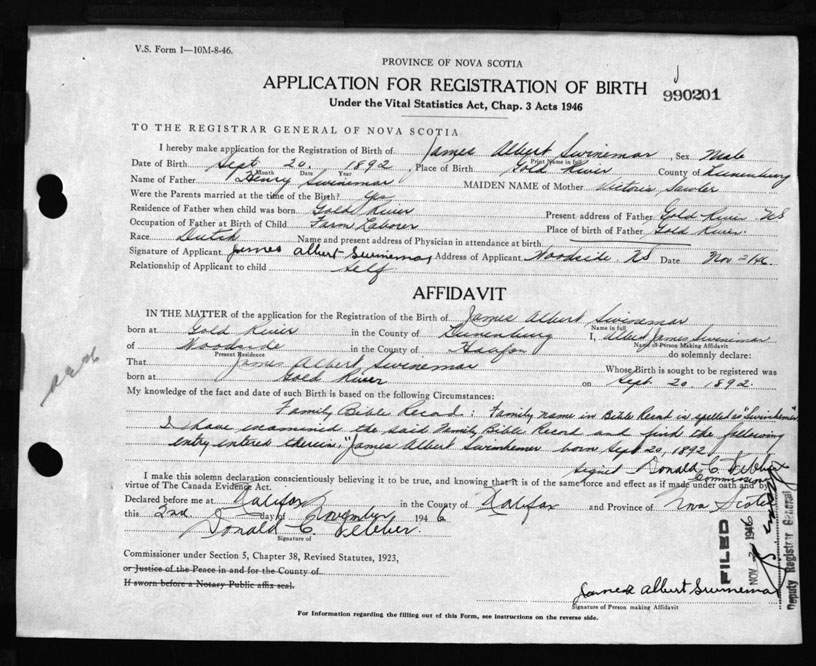 V.S. Form 1—10M-8-46.
PROVINCE OF NOVA SCOTIA
APPLICATION FOR REGISTRATION OF BIRTH
990201
Under the Vital Statistics Act, Chap. 3 Acts 1946
TO THE REGISTRAR GENERAL OF NOVA SCOTIA
I hereby make application for the Registration of Birth of James Albert Swinemar, Sex Male
Print Name in full
Date of Birth Sept 20. 1892, Place of Birth Gold River County of Lunenburg
Month Date Year
Name of Father Henry Swinemar MAIDEN NAME of Mother Sawler
Were the Parents married at the time of the Birth? Yes
Residence of Father when child was born Gold River Present address of Father Gold River NS
Occupation of Father at Birth of Child Farm Laborer Place of birth of Father Gold River.
Race Dutch Name and present address of Physician in attendance at birth
Signature of Applicant James Albert Swinemar Address of Applicant Woodside, NS Date Nov 2/46.
Relationship of Applicant to child Self
AFFIDAVIT
IN THE MATTER of the application for the Registration of the Birth of James Albert Swinemar
Name in full
born at Gold River in the County of Lunenburg I, Albert James Swinemar
Name of Person Making Affidavit
of Woodside in the County of Halifax do solemnly declare:
Present Residence
That James Albert Swinemar Whose Birth is sought to be registered was
born at Gold River on Sept. 20. 1892.
My knowledge of the fact and date of such Birth is based on the following Circumstances:
Family Bible Record: Family name in Bible Record is spelled as "Swinhemer"
I have examined the said Family Bible Record and find the following
entry entered therein. "James Albert Swinhemer born Sept 20, 1892
Signed Donald C.
Commissioner
I make this solemn declaration conscientiously believing it to be true, and knowing that it is of the same force and effect as if made under oath and by
virtue of The Canada Evidence Act.
Declared before me at Halifax in the County of Halifax and Province of Nova Scotia
this 2nd day of November 1946
Donald C.
Signature of
Commissioner under Section 5, Chapter 38, Revised Statutes, 1923,
or Justice of the Peace in and for the County of
If sworn before a Notary Public affix seal.
James Albert Swinemar
Signature of Person making Affidavit
For Information regarding the filling out of this Form, see instructions on the reverse side.
FILED
NOV 2 1946
Deputy Registrar General